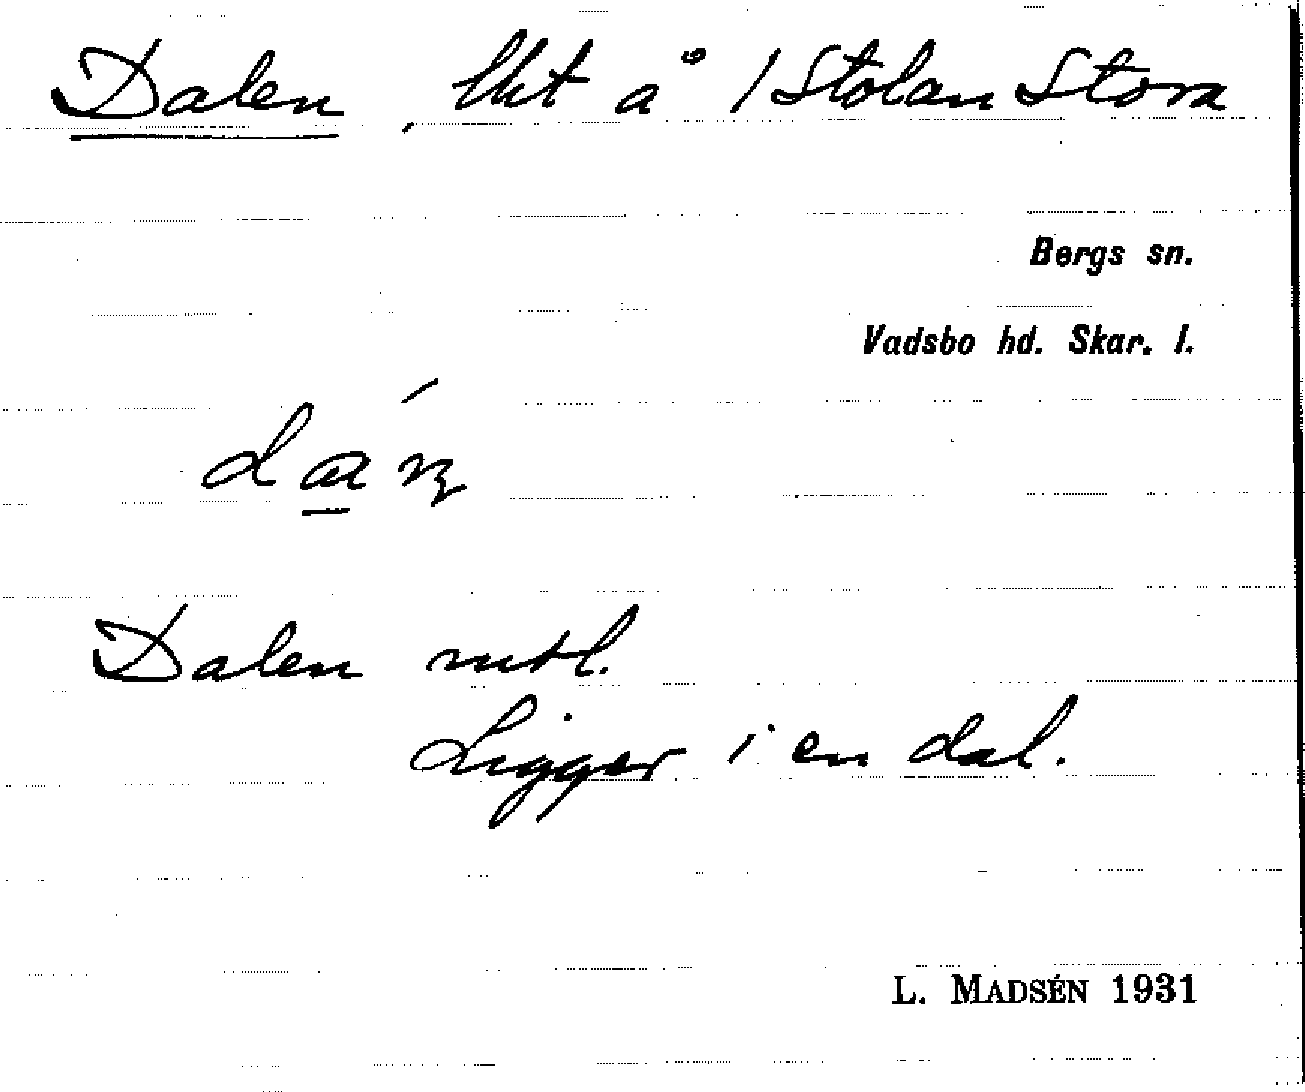 Dalen, lht å 1 Stolan Stora
Bergs sn.
Vadsbo hd. Skar. l.
Dalen mtl.
Ligger i en dal.
L. MADSÉN 1931